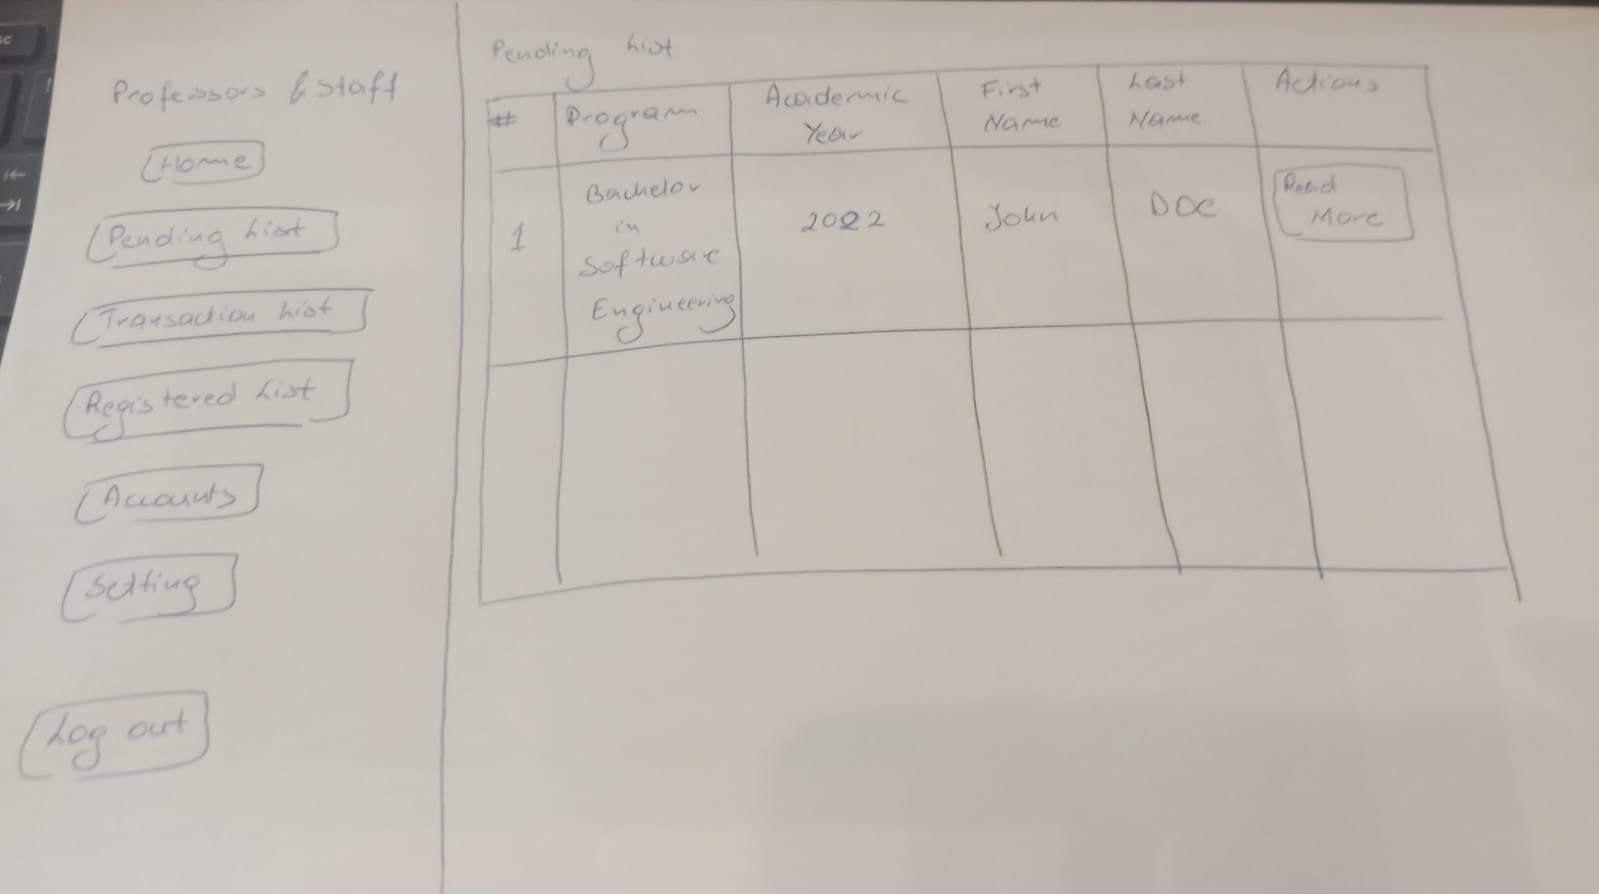 Professors & Staff
Home
Pending List
Transaction List
Registered List
Accounts
Setting
Log out
Pending List
#
Program
Academic
Year
First
Name
Last
Name
Actions
1
Bachelor
in
Software
Engineering
2022
John
DOE
Read
More